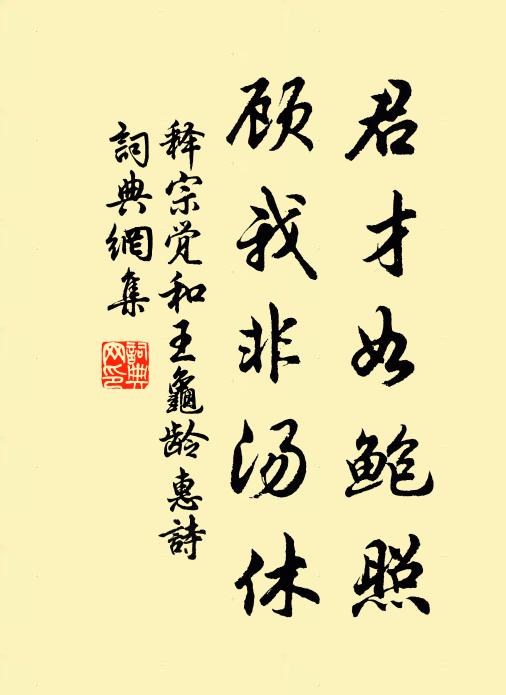 君才如鲍照
顾我非汤休
释宗觉和王龜龄惠詩
詞典網集
詞典网印